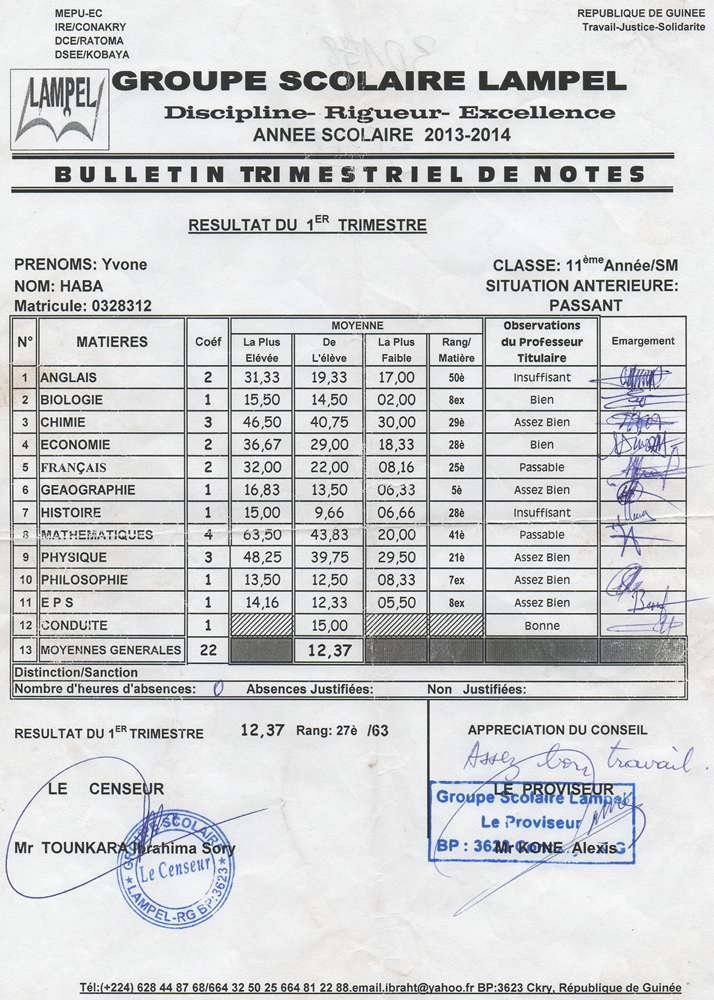 MEPU-EC
IRE/CONAKRY
DCE/RATOMA
DSEE/KOBAYA
REPUBLIQUE DE GUINEE
Travail-Justice-Solidarite
LAMPEL
GROUPE SCOLAIRE LAMPEL
Discipline- Rigueur- Excellence
ANNEE SCOLAIRE 2013-2014
BULLETIN TRIMESTRIEL DE NOTES
RESULTAT DU 1ER TRIMESTRE
PRENOMS: Yvone
NOM: HABA
Matricule: 0328312
CLASSE: 11èmeAnnée/SM
SITUATION ANTERIEURE:
PASSANT
N° MATIERES Coéf MOYENNE Observations du Professeur Titulaire Emargement
La Plus Elévée De L'élève La Plus Faible Rang/ Matière
1 ANGLAIS 2 31,33 19,33 17,00 50è Insuffisant
2 BIOLOGIE 1 15,50 14,50 02,00 8ex Bien
3 CHIMIE 3 46,50 40,75 30,00 29è Assez Bien
4 ECONOMIE 2 36,67 29,00 18,33 28è Bien
5 FRANÇAIS 2 32,00 22,00 08,16 25è Passable
6 GEAOGRAPHIE 1 16,83 13,50 06,33 5è Assez Bien
7 HISTOIRE 1 15,00 9,66 06,66 28è Insuffisant
8 MATHEMATIQUES 4 63,50 43,83 20,00 41è Passable
9 PHYSIQUE 3 48,25 39,75 29,50 21è Assez Bien
10 PHILOSOPHIE 1 13,50 12,50 08,33 7ex Assez Bien
11 E P S 1 14,16 12,33 05,50 8ex Assez Bien
12 CONDUITE 1 15,00 Bonne
13 MOYENNES GENERALES 22 12,37
Distinction/Sanction
Nombre d'heures d'absences: 0 Absences Justifiées: Non Justifiées:
RESULTAT DU 1ER TRIMESTRE 12,37 Rang: 27è /63
APPRECIATION DU CONSEIL
Assez bon travail.
LE CENSEUR
LE PROVISEUR
Groupe Scolaire Lampel
Le Proviseur
BP : 3623
Mr KONE Alexis
Mr TOUNKARA Ibrahima Sory
GROUPE SCOLAIRE
Le Censeur
LAMPEL-RG BP:3623
Tél:(+224) 628 44 87 68/664 32 50 25 664 81 22 88.email.ibraht@yahoo.fr BP:3623 Ckry, République de Guinée